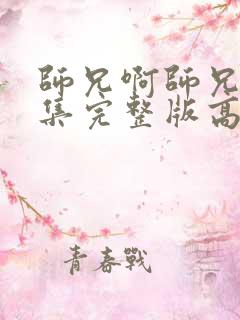 師兄啊師兄
集完整版高
青春戰